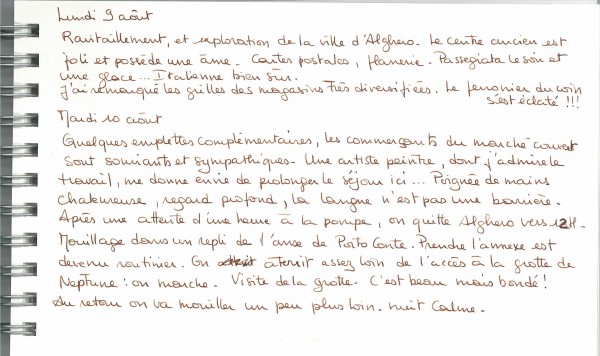 Lundi 9 août
Ravitaillement, et exploration de la ville d'Alghero. Le centre ancien est
joli et possède une âme. Cartes postales, flânerie. Passegiata le soir et
une glace... Italienne bien sûr.
J'ai remarqué les grilles des magasins très diversifiées. Le ferronier du coin
s'est éclaté !!!
Mardi 10 août
Quelques emplettes complémentaires, les commerçants du marché couvert
sont souriants et sympathiques. Une artiste peintre, dont j'admire le
travail, me donne envie de prolonger le séjour ici... Poignée de mains
chaleureuse, regard profond, la langue n'est pas une barrière.
Après une attente d'une heure à la pompe, on quitte Alghero vers 12H.
Mouillage dans un repli de l'anse de Porto Conte. Prendre l'annexe est
devenu routinier. On atterrit assez loin de l'accès à la grotte de
Neptune : on marche. Visite de la grotte. C'est beau mais bondé !
Au retour on va mouiller un peu plus loin. nuit calme.